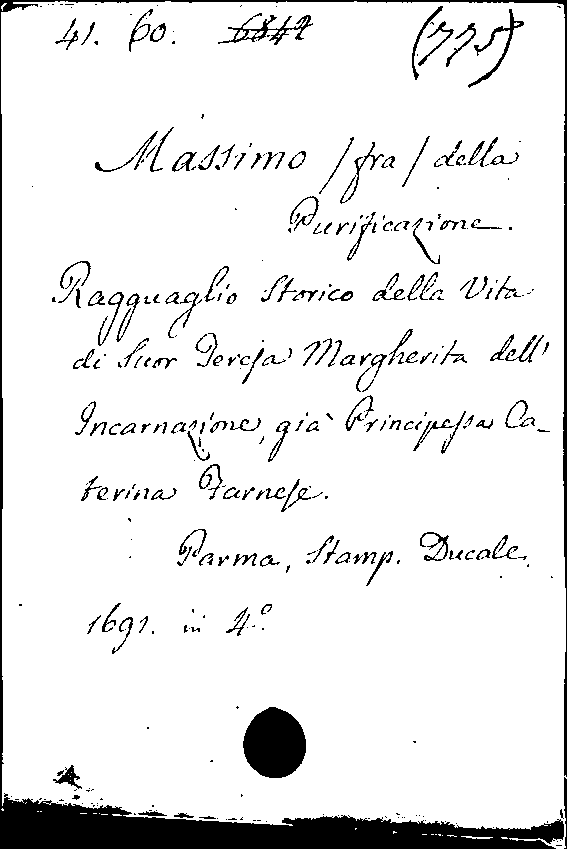 41. 60. 6842 (775)
Massimo /fra/ della
Purificazione.
Ragguaglio Storico della Vita
di Suor Teresa Margherita dell'
Incarnazione, già Principessa Ca-
terina Farnese.
Parma, Stamp. Ducale.
1691. in 4.º